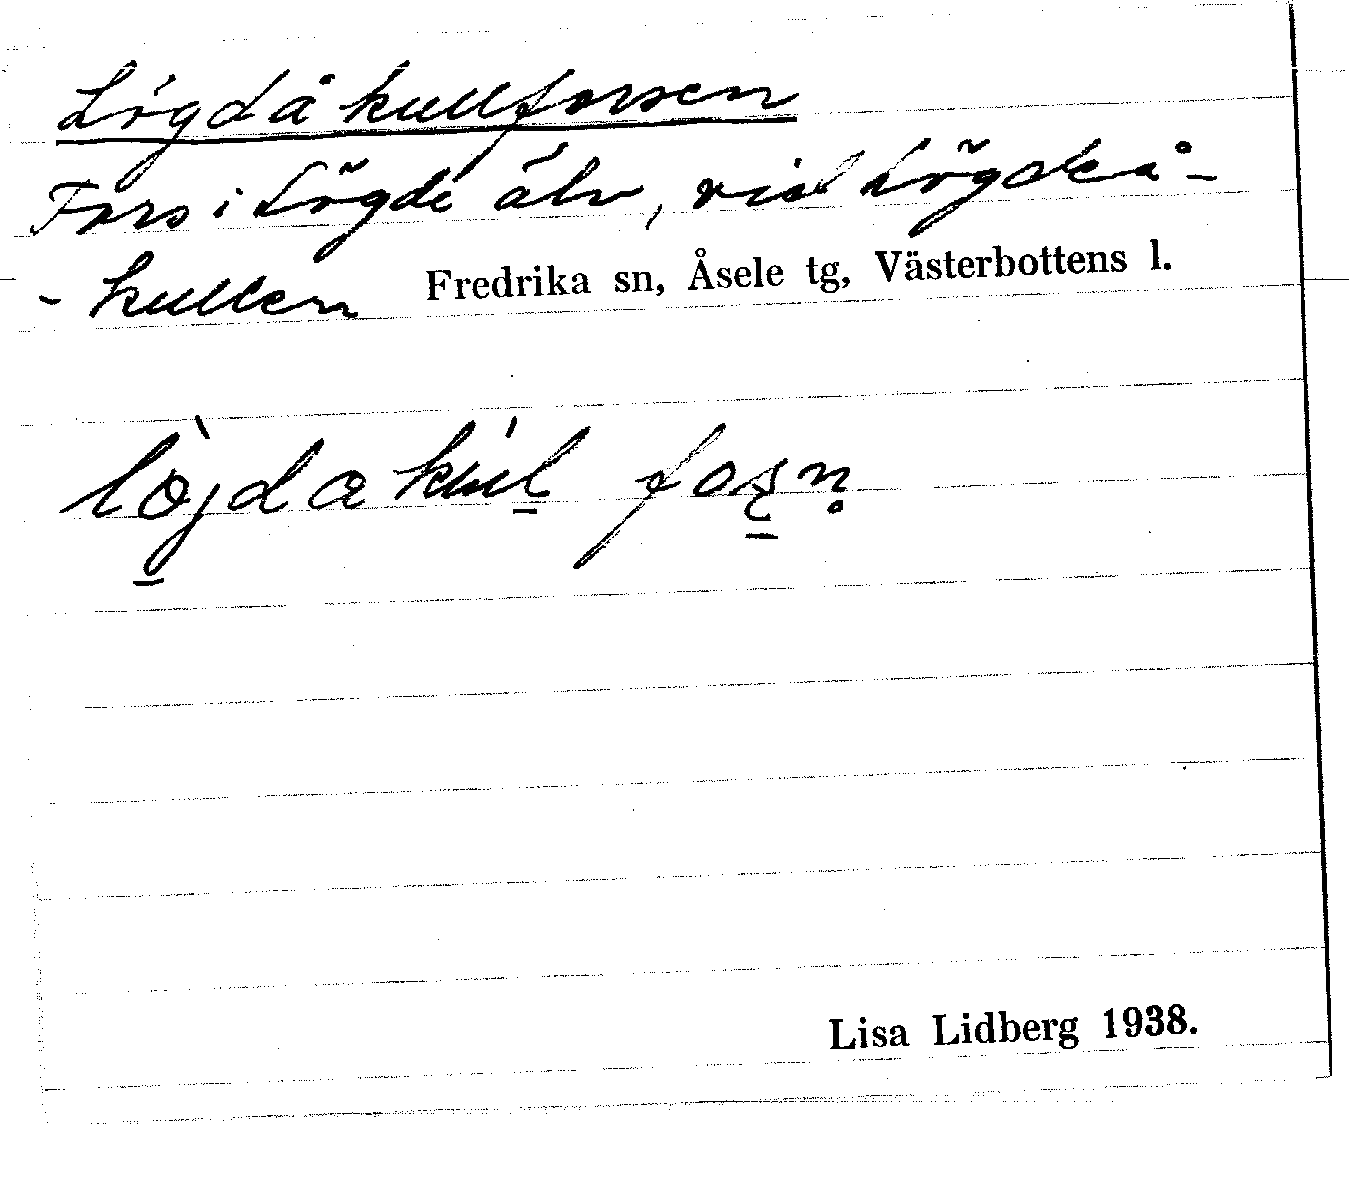 Lögdåkullforsen
Fors i Lögde älv, vid Lögdeå-
-kullen Fredrika sn, Åsele tg, Västerbottens l.
lòjdakúl foșṇ
Lisa Lidberg 1938.